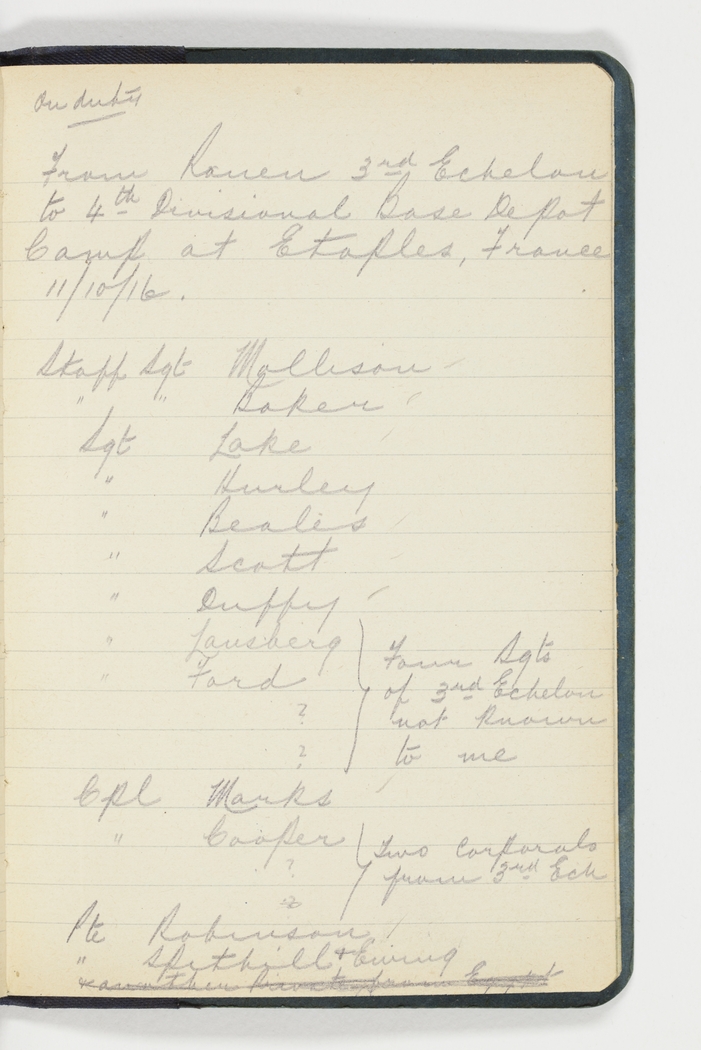 On duty
From Rouen 3rd Echelon
to 4th Divisional Base Depot
Camp at Etaples, France
11/10/16.
Staff Sgt Mollison
" " Baker
Sgt Lake
" Hurley
" Beales
" Scott
" Duffy
" Lansberg
" Ford
?
?
Four Sgts
of 3rd Echelon
not known
to me
Cpl Marks
" Cooper
?
?
Two Corporals
from 3rd Ech
Pte Robinson
" Spithill & Ewing
& another Private from Egypt